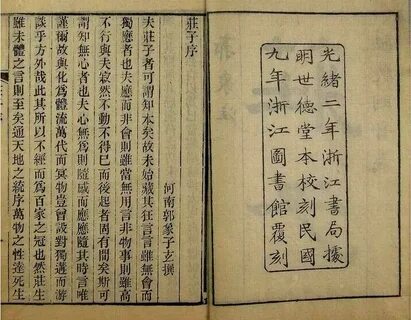 光緒二年浙江書局據
明世德堂本校刻民國
九年浙江圖書館覆刻
莊子序
河南郭象子玄撰
夫莊子者可謂知本矣故未始藏其狂言言雖無會而
獨應者也夫應而非會則雖當無用言非物事則雖高
不行與夫寂然不動不得已而後起者固有間矣斯可
謂知無心者也夫心無爲則隨感而應應隨其時言唯
謹爾故與化爲體流萬代而冥物豈曾設對獨遘而游
談乎方外哉此其所以不經而爲百家之冠也然莊生
雖未體之言則至矣通天地之統序萬物之性達死生